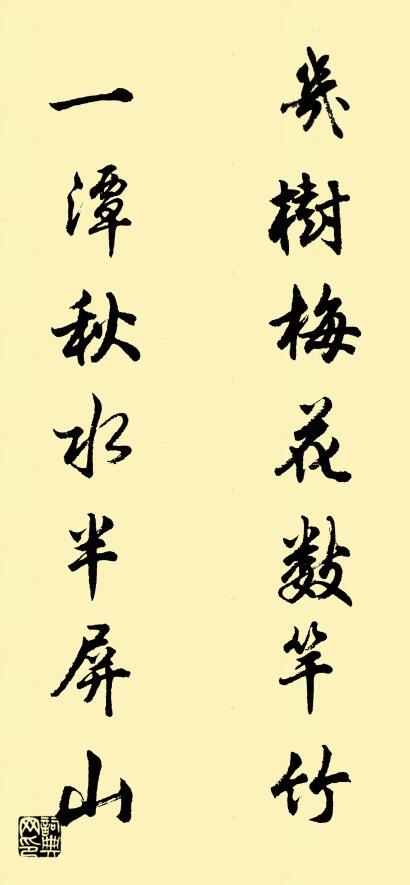 幾樹梅花數竿竹
一潭秋水半屏山
詞典网印